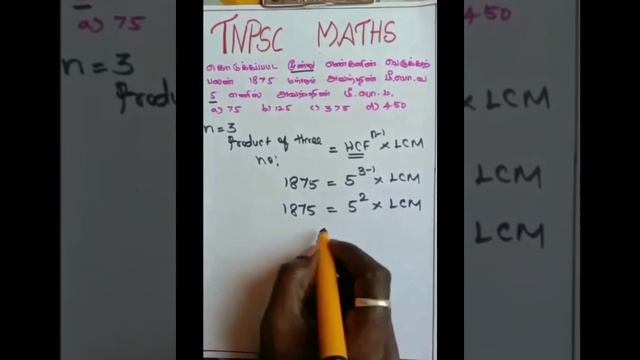 TNPSC MATHS
கொடுக்கப்பட்ட மூன்று எண்களின் பெருக்கற்
பலன் 1875 மற்றும் அவற்றின் மீ.பொ.வ
5 எனில் அவற்றின் மீ.பொ.ம.
a) 75 b) 125 c) 375 d) 450
n=3
Product of three no: = HCF^n-1 × LCM
1875 = 5^3-1 × LCM
1875 = 5^2 × LCM